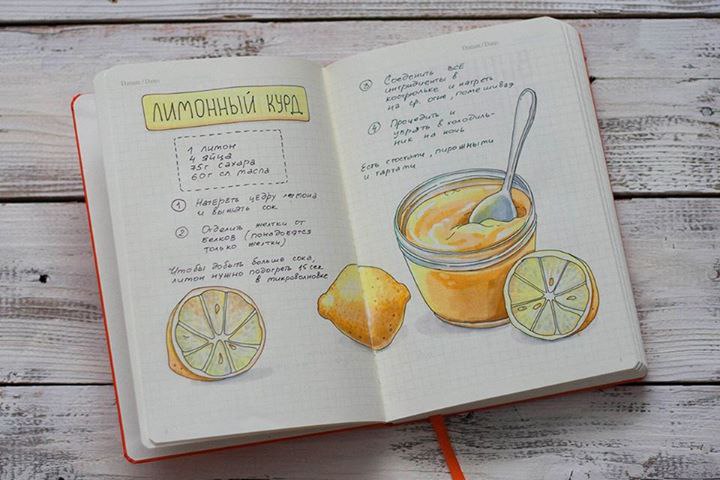 Datum / Date:
ЛИМОННЫЙ КУРД
1 лимон
4 яйца
75г сахара
60г сл масла
1 Натереть цедру лимона
и выжать сок
2 Отделить желтки от
белков (понадобятся
только желтки)
Чтобы добыть больше сока,
лимон нужно подогреть 15 сек.
в микроволновке
Datum / Date:
3 Соеденить все
ингридиенты в
кострюльке и нагреть
на ср. огне, помешивая
4 Процедить и
убрать в холодиль-
ник на ночь
Есть с тостами, пирожными
и тартами